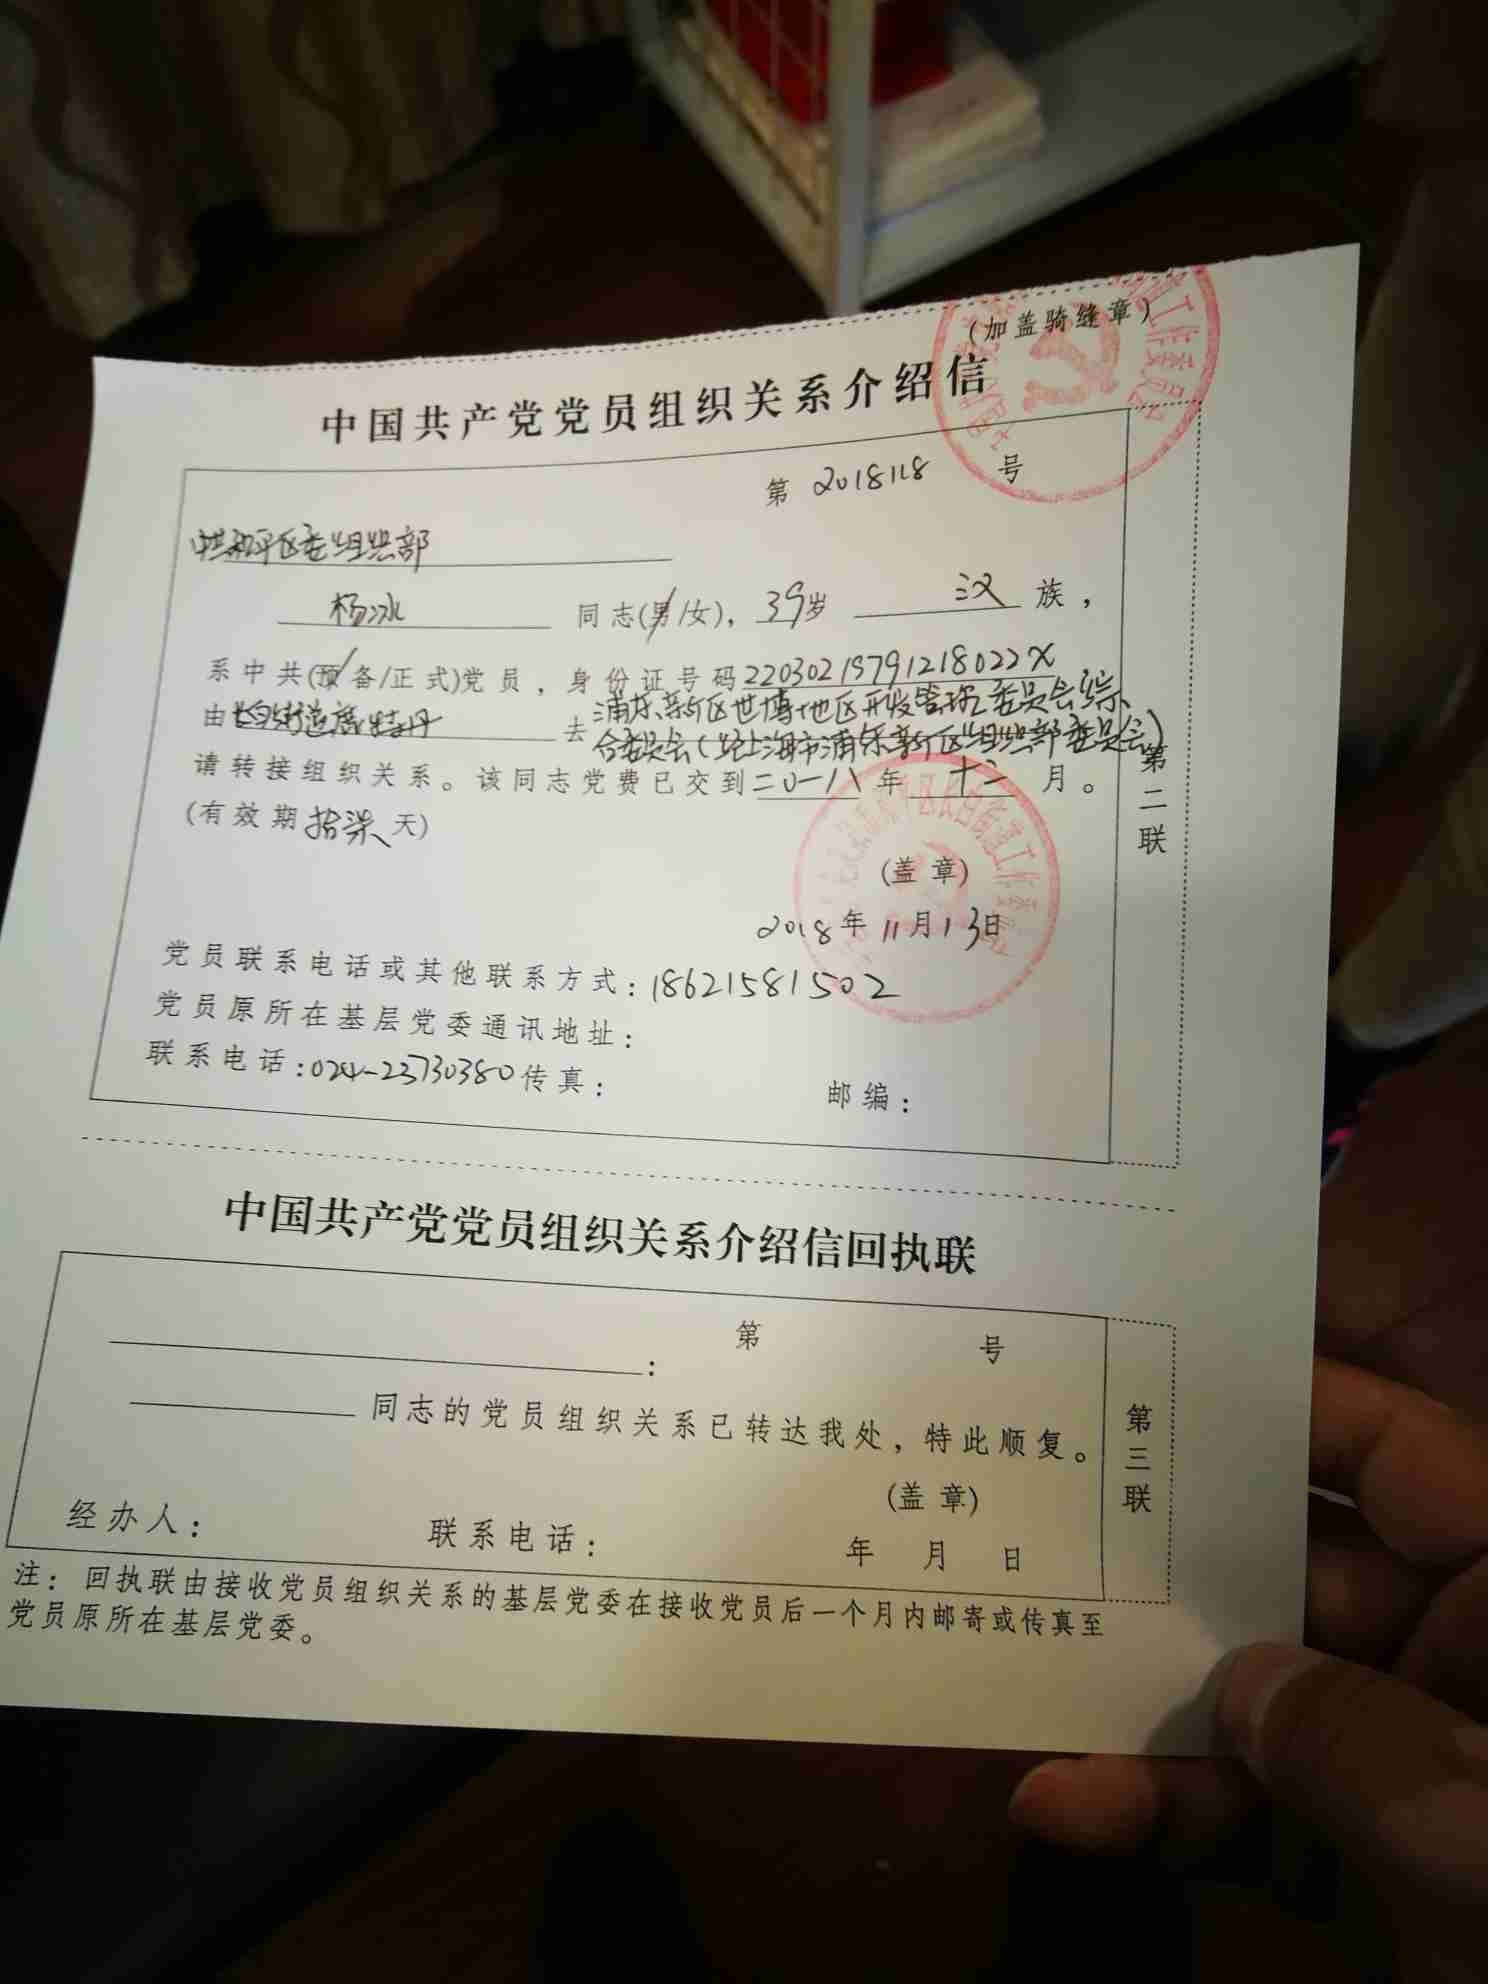 (加盖骑缝章)
中国共产党党员组织关系介绍信
第 2018118 号
中共和平区委组织部
杨冰 同志(男/女)，39岁 汉 族，
系中共(预备/正式)党员，身份证号码22030219791218022X
由长白街道 去 浦东新区世博地区开发管理委员会综
合委员会(经上海市浦东新区组织部委员会)
请转接组织关系。该同志党费已交到二〇一八年 十二 月。
(有效期拾柒天)
第二联
(盖章)
2018年11月13日
党员联系电话或其他联系方式：18621581502
党员原所在基层党委通讯地址：
联系电话：024-23730380 传真： 邮编：
中国共产党党员组织关系介绍信回执联
第 号
：
同志的党员组织关系已转达我处，特此顺复。
第三联
(盖章)
经办人： 联系电话： 年 月 日
注：回执联由接收党员组织关系的基层党委在接收党员后一个月内邮寄或传真至
党员原所在基层党委。